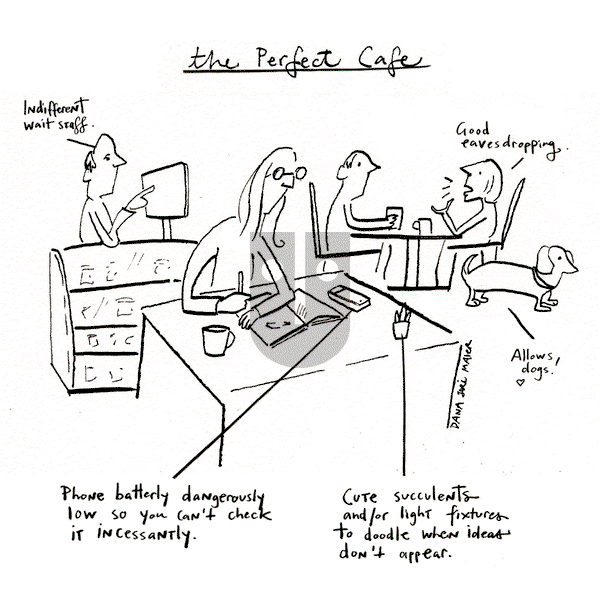 the Perfect Cafe
Indifferent
wait staff.
Good
eavesdropping.
Allows
dogs!
DANA Jeri MAIER
Phone batterly dangerously
low so you can't check
it incessantly.
Cute succulents
and/or light fixtures
to doodle when ideas
don't appear.